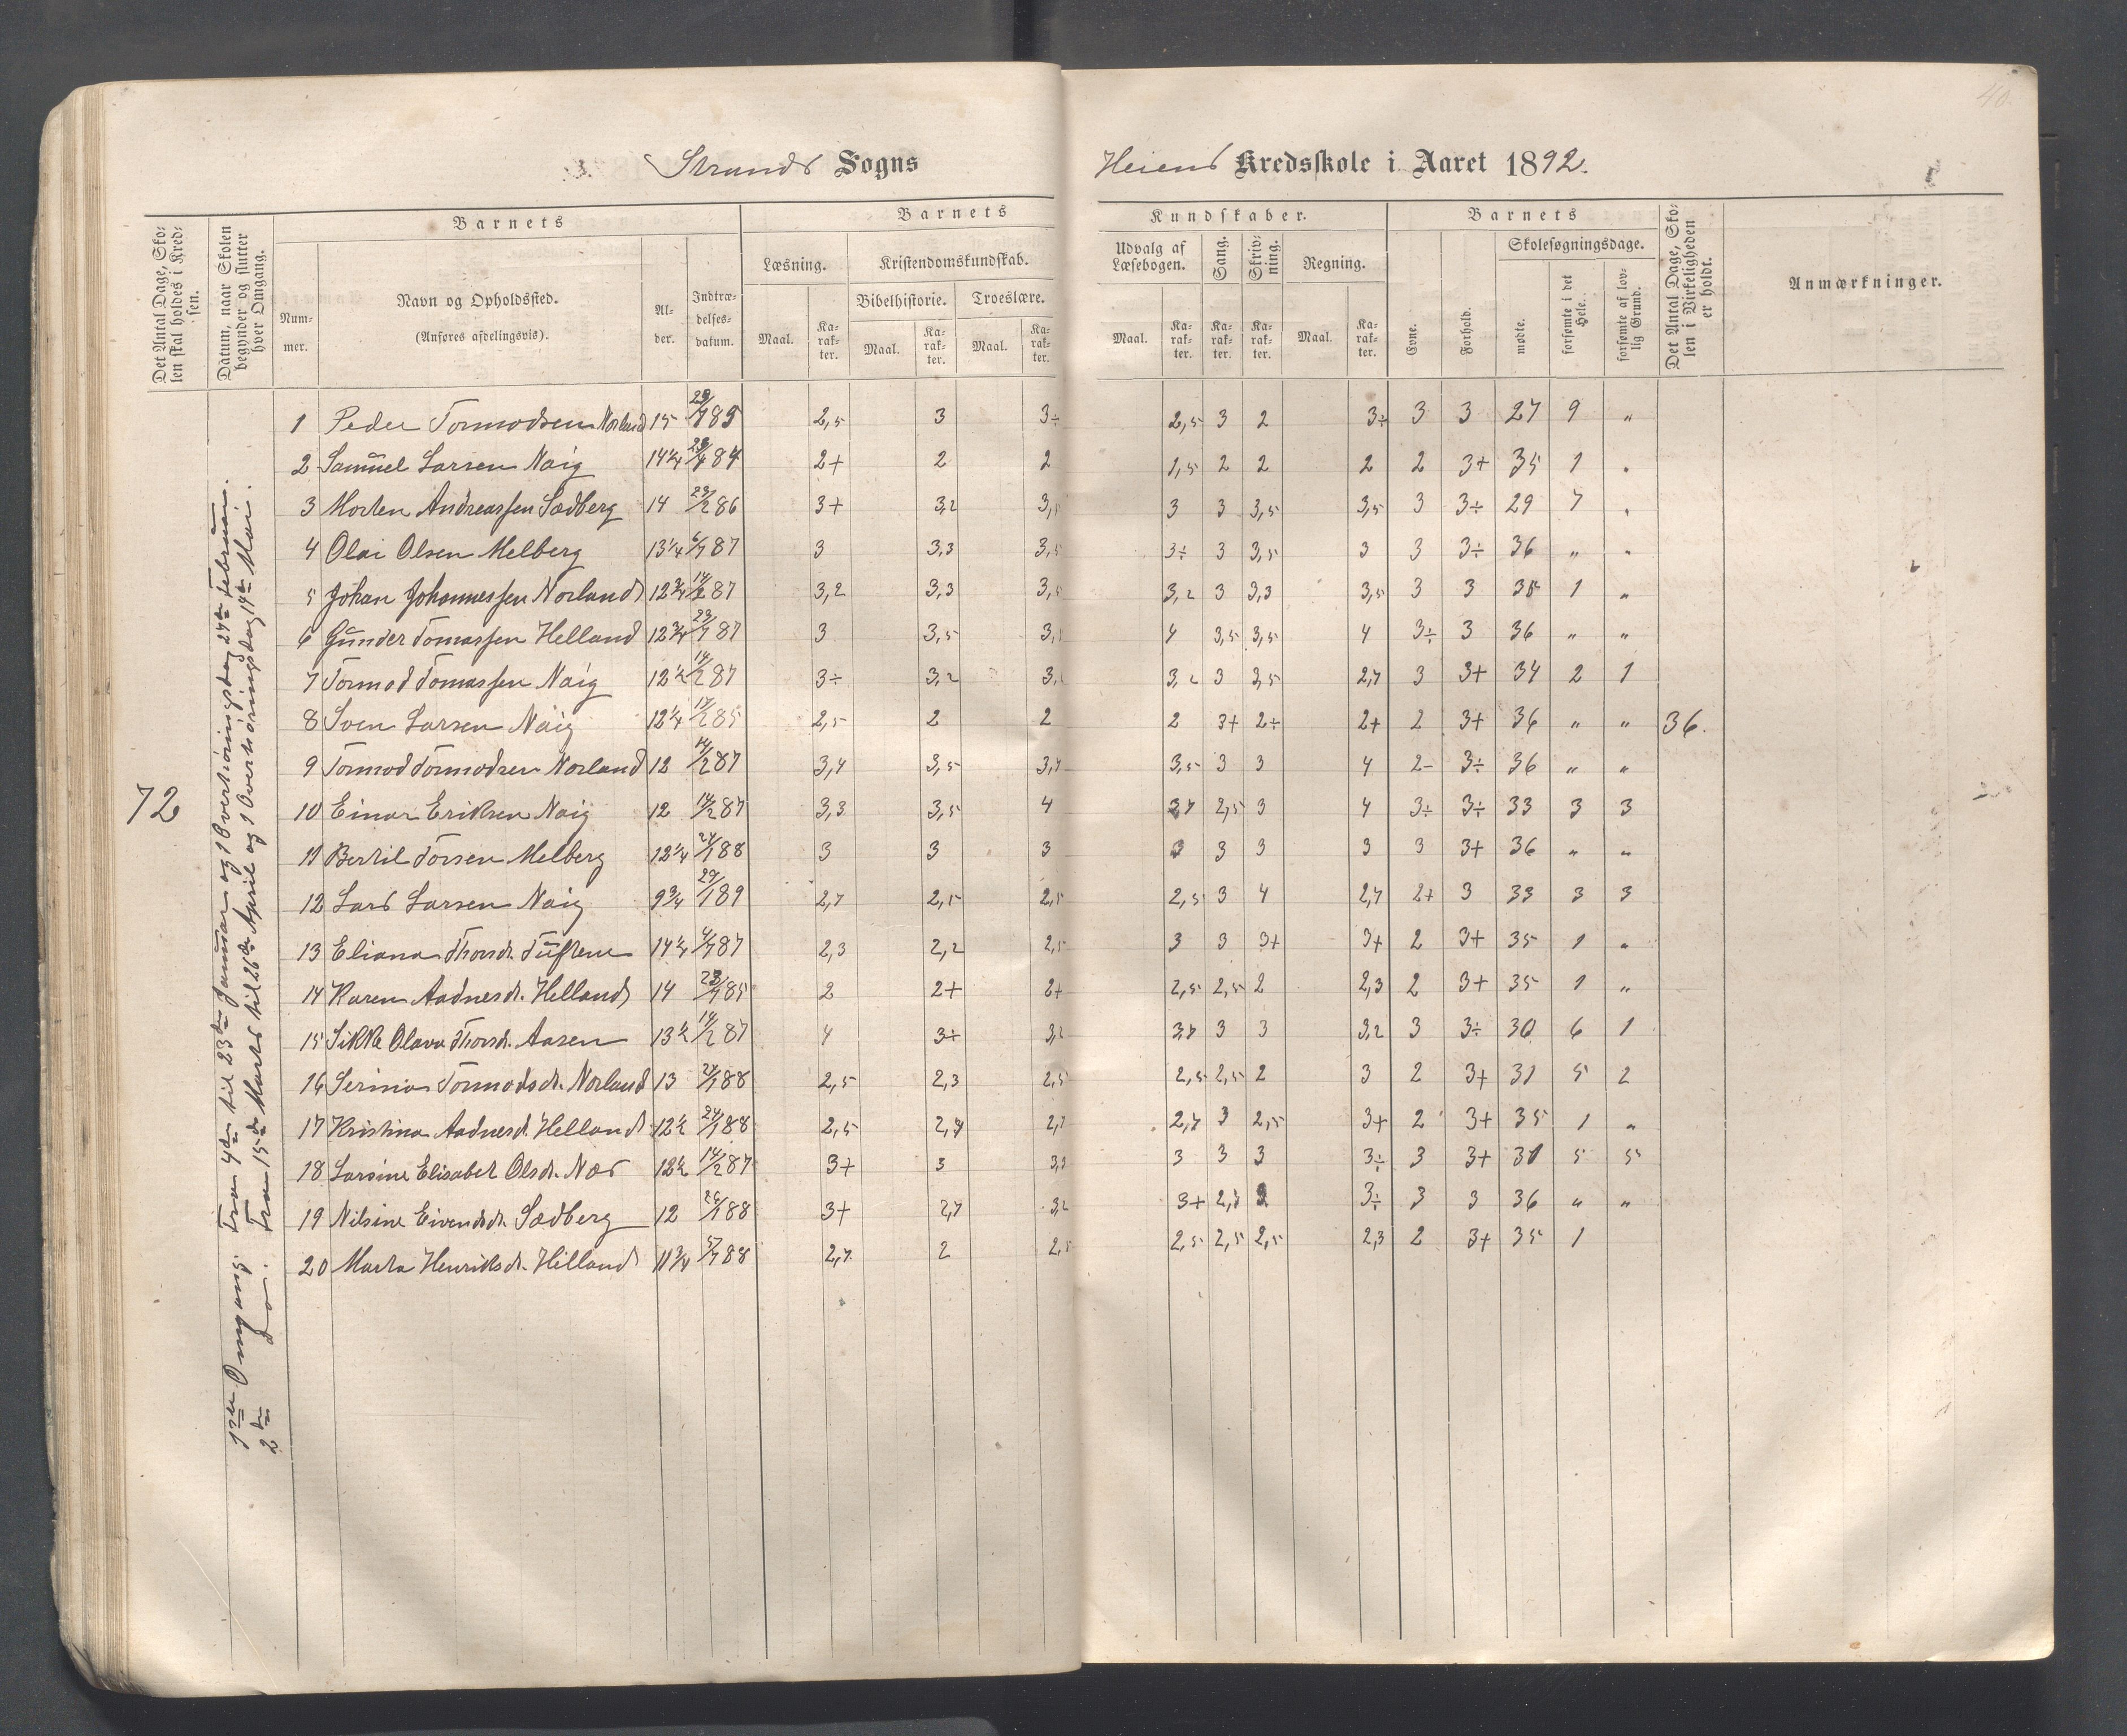 40
Strands Sogns
Heiens Kredsskole i Aaret 1892.
Det Antal Dage, Sko-
len skal holdes i Kred-
sen.
Datum, naar Skolen
begynder og slutter
hver Omgang.
Barnets
Num-
mer.
Navn og Opholdssted.
(Anføres afdelingsvis).
Al-
der.
Indtræ-
delses-
datum.
Barnets
Kundskaber.
Læsning.
Kristendomskundskab.
Bibelhistorie.
Troeslære.
Maal.
Ka-
rak-
ter.
Maal.
Ka-
rak-
ter.
Maal.
Ka-
rak-
ter.
Udvalg af
Læsebogen.
Sang.
Skriv-
ning.
Regning.
Maal.
Ka-
rak-
ter.
Ka-
rak-
ter.
Ka-
rak-
ter.
Maal.
Ka-
rak-
ter.
Barnets
Evne.
Forhold.
Skolesøgningsdage.
mødte.
forsømte i det
Hele.
forsømte af lov-
lig Grund.
Det Antal Dage, Sko-
len i Virkeligheden
er holdt.
Anmærkninger.
72
1ste Omgang: Fra 4de til 23de Januar og 1 Overhøringsdag 24de Februar.
2den do. Fra 15de Marts til 26de April og 1 Overhøringsdag 14de Mai.
36.
1 Peder Tormodsen Norland 15 29/1 85 2,5 3 3÷ 2,5 3 2 3÷ 3 3 27 9 „
2 Samuel Larsen Naig 14¼ 84 2+ 2 2 1,5 2 2 2 2 3+ 35 1 „
3 Morten Andreassen Sædberg 14 23/2 86 3+ 3,2 3,5 3 3 3,5 3,5 3 3÷ 29 7 „
4 Olai Olsen Melberg 13¼ 6/1 87 3 3,3 3,5 3÷ 3 3,5 3 3 3÷ 36 „ „
5 Johan Johannessen Norland 12¾ 14/2 87 3,2 3,3 3,5 3,2 3 3,3 3,5 3 3 35 1 „
6 Gunder Tomassen Helland 12¾ 23/1 87 3 3,5 4 3,5 3,5 4 3÷ 3 36 „ „
7 Tormod Tomassen Naig 12½ 14/2 87 3÷ 3,2 3,2 3 3,5 2,7 3 3+ 34 2 1
8 Sven Larsen Naig 12¼ 17/2 85 2,5 2 2 2 3+ 2÷ 2+ 2 3+ 36 „ „
9 Tormod Tormodsen Norland 12 14/2 87 3,7 3,5 3,7 3,5 3 3 4 2– 3÷ 36 „ „
10 Einar Eriksen Naig 12 14/2 87 3,3 3,5 4 3,7 2,5 3 4 3÷ 3÷ 33 3 3
11 Bertil Torsen Melberg 12¼ 24/1 88 3 3 3 3 3 3 3 3 3+ 36 „ „
12 Lars Larsen Naig 9¾ 29/1 89 2,7 2,5 2,5 2,5 3 4 2,7 2+ 3 33 3 3
13 Eliana Thorsd. Tuftene 14¼ 4/1 87 2,3 2,2 2,5 3 3 3+ 3+ 2 3+ 35 1 „
14 Karen Aadnesd. Helland 14 23/1 85 2 2+ 2+ 2,5 2,5 2 2,3 2 3+ 35 1 „
15 Sikke Olava Thorsd. Aasen 13½ 14/2 87 4 3÷ 3,2 3,7 3 3 3,2 3 3÷ 30 6 1
16 Serina Tormodsd. Norland 13 21/1 88 2,5 2,3 2,5 2,5 2,5 2 3 2 3+ 31 5 2
17 Kristina Aadnesd. Helland 12½ 24/1 88 2,5 2,7 2,7 2,7 3 2,5 3+ 2 3+ 35 1 „
18 Larsine Elisabet Olsd. Næs 12½ 14/2 87 3+ 3 3,3 3 3 3 3÷ 3 3+ 31 5 5
19 Nilsine Eivendsd. Sædberg 12 26/1 88 3+ 2,7 3,2 3+ 2,7 3 3÷ 3 3 36 „ „
20 Marta Henriksd. Helland 11¾ 5/1 88 2,7 2 2,5 2,5 2,5 2,5 2,3 2 3+ 35 1